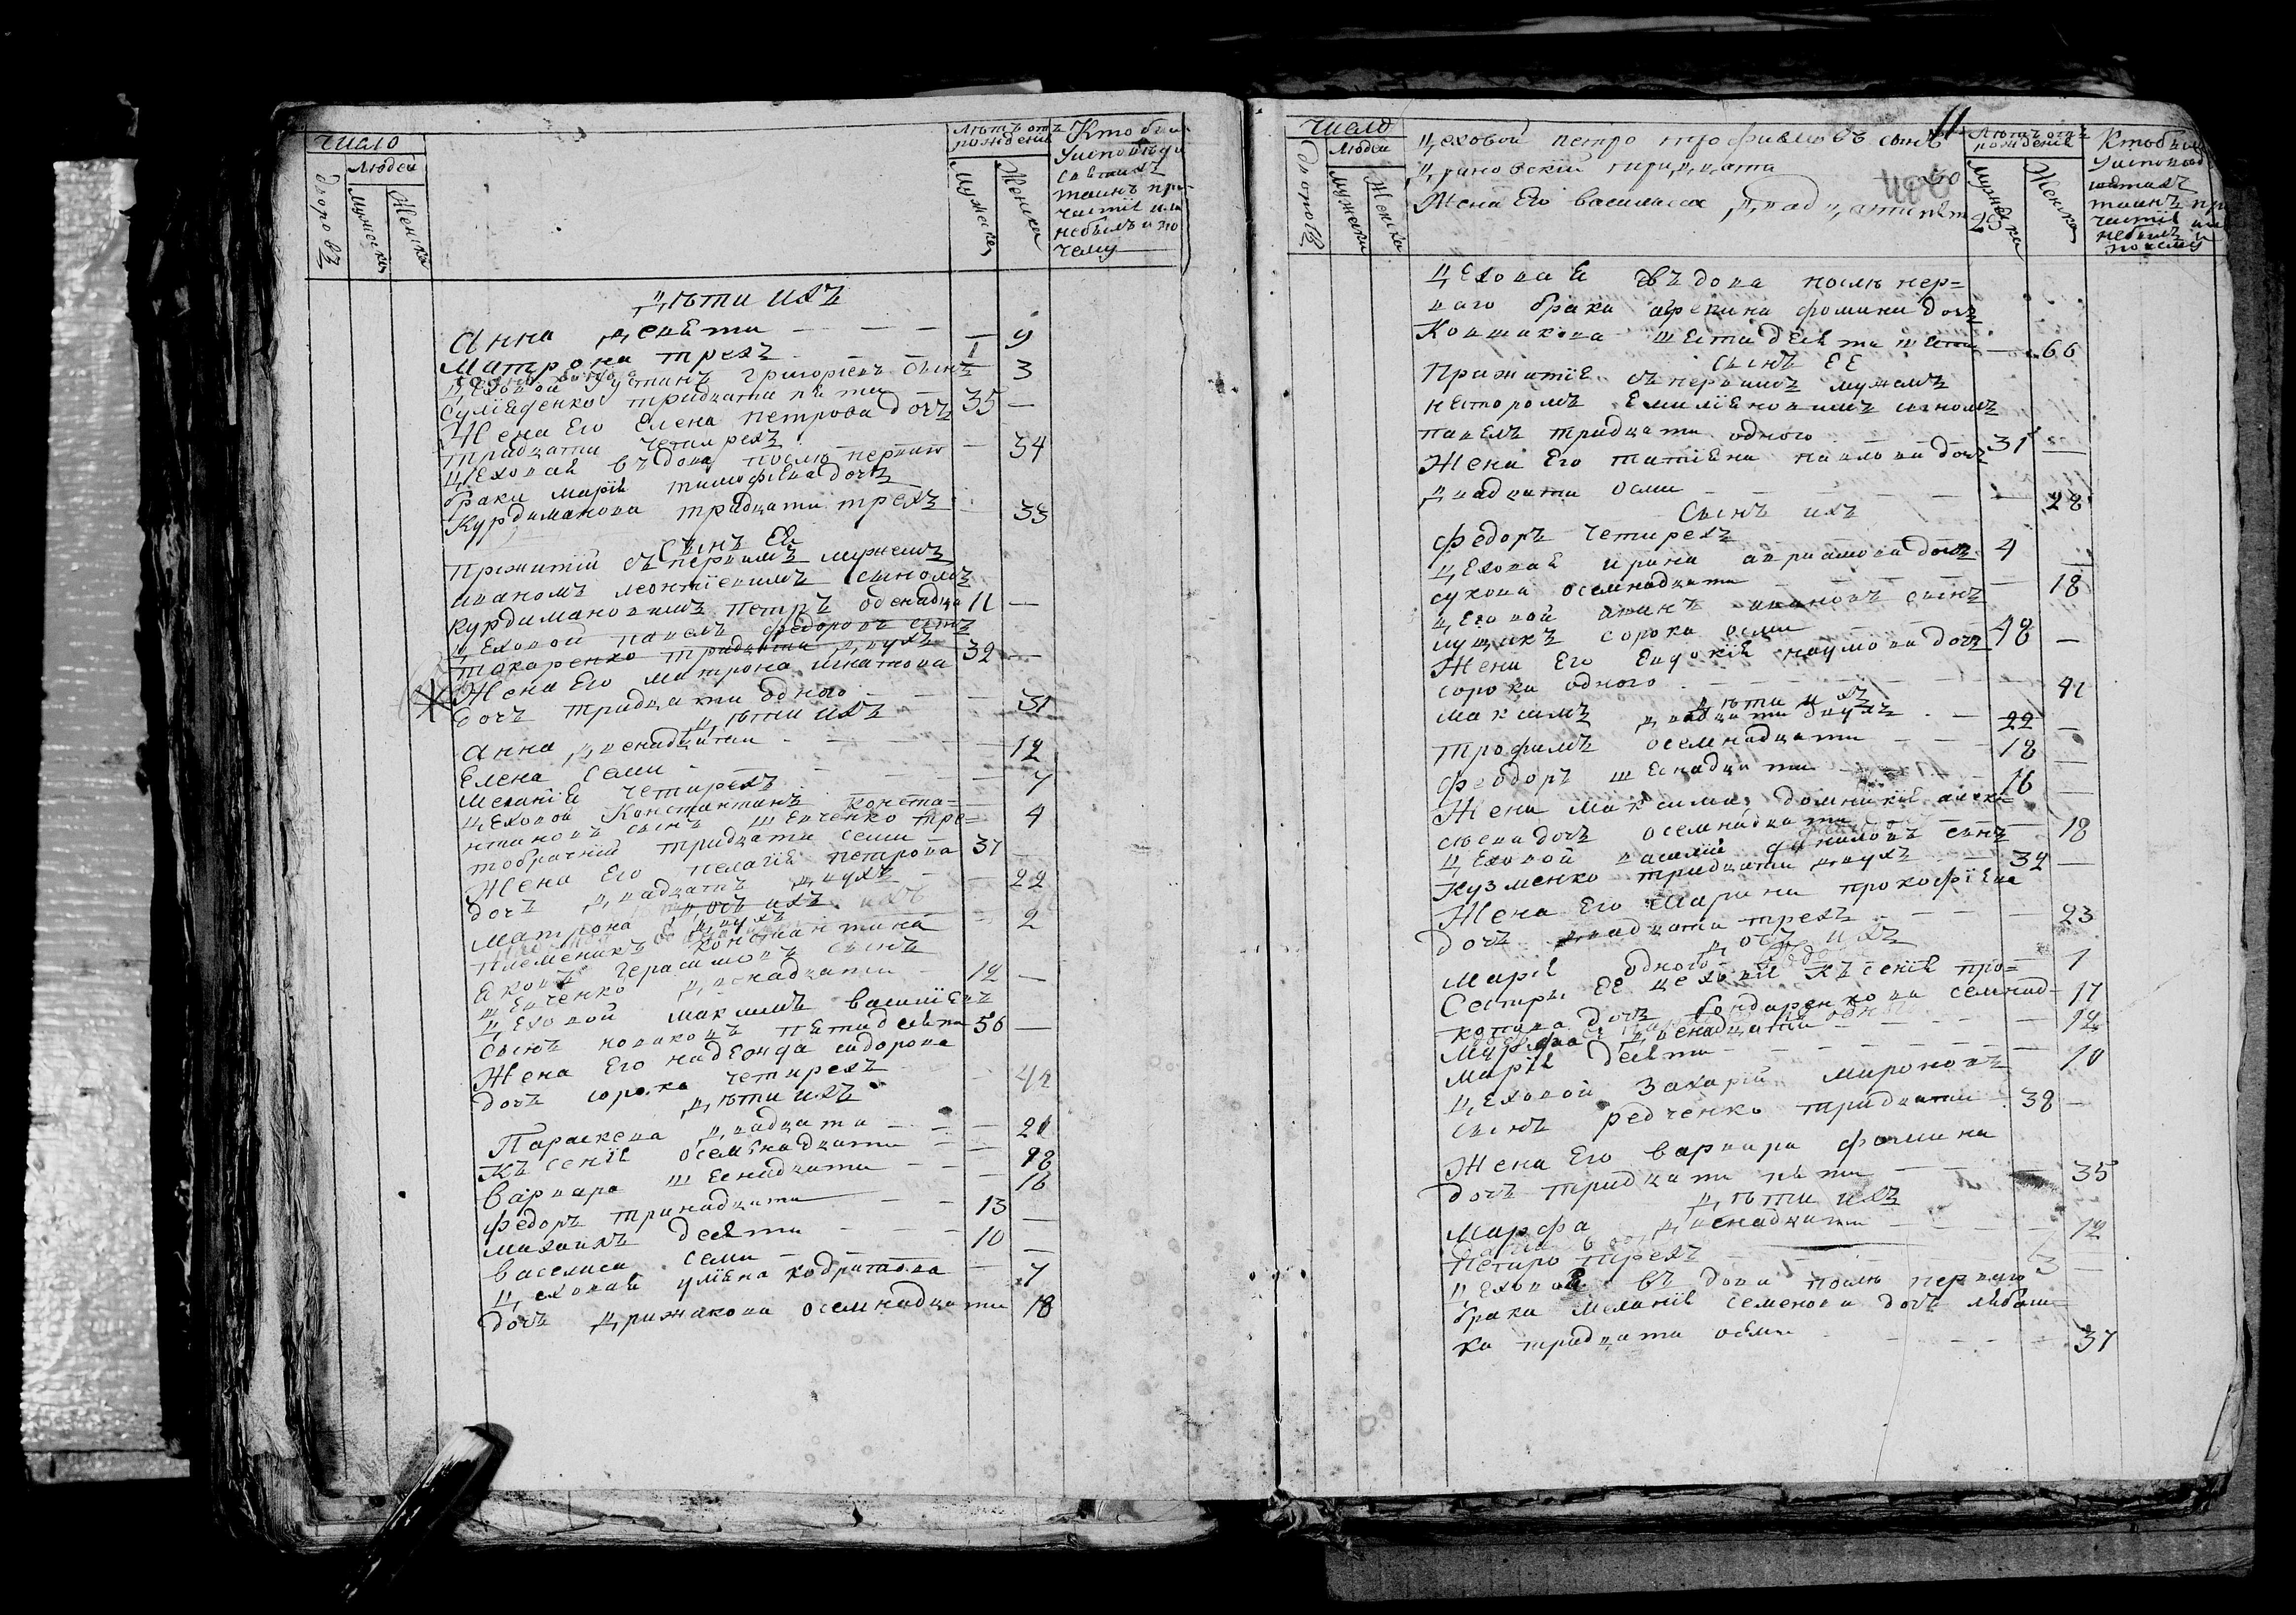 число
Людей
дворовъ
Мужеска
Женска
Лѣтъ отъ
рожденія
Мужеска
Женска
Кто был
У исповѣди
святихъ
таинъ при
частія или
небылъ и по
чему
Дѣти ихъ
Анна девяти — 9
Матрона трехъ — 3
Цеховой Устинъ Григоріевъ сынъ
тридцати пяти 35 —
Жена Его Елена Петрова дочъ
тридцати четирехъ — 34
Цеховая въдова послѣ перваго
брака Марія тимофѣева дочъ
Курдиманова тридцати трехъ — 33
Сынъ Ея
Прижитій съ первимъ мужемъ
иваномъ леонтіевимъ сыномъ
курдимановимъ Петръ оденадца 11 —
Цеховой павелъ федоровъ сынъ
токаренко тридцати двухъ 32 —
Жена Его матрона игнатова
дочъ тридцати одного — 31
Дѣти ихъ
Анна двенадцати — 12
Елена семи — 7
Меланія четирехъ — 4
Цеховой Константинъ конста=
нтиновъ сынъ шевченко тре=
тобрачній тридцати семи 37 —
Жена Его пелагія петрова
дочъ двадцать двухъ — 22
дочъ ихъ
матрона двухъ — 2
племеникъ константина
Яковъ герасимовъ сынъ
шевченко двенадцати 12 —
Цеховой максимъ василіевъ
сынъ новаковъ пятидесяти 56 —
Жена Его надежда сидорова
дочъ сорока четирехъ — 44
Дѣти ихъ
Параскева двадцати — 20
Късенія осемнадцати — 18
Варвара шеснадцати — 16
Федоръ тринадцати 13 —
михаилъ десяти 10 —
василиса семи — 7
Цеховая уліяна кодратова
дочъ Дрижакова осемнадцати 18
11
число
Людей
Мужеска
Женска
Цеховой петро трофимовъ сынъ
тридцати
Жена Его василиса двадцати пяти 25
Лѣтъ отъ
рожденія
Мужеска
Женска
Кто был
У исповѣд
святихъ
таинъ при
частія или
небылъ и
почему
Цеховая въдова послѣ пер=
ваго брака фомина дочъ
Ковшакова шестидесяти шести — 66
Сынъ ЕЕ
Прижитіе съ первимъ мужемъ
несторомъ Емиліяновимъ сыномъ
павелъ тридцати одного 31 —
Жена Его татіяна павлова дочъ
двадцати осми — 28
Сынъ ихъ
Федоръ четирехъ 4 —
Цеховая ирина авриамова дочъ
сукова осемнадцати — 18
Цеховой ивановъ сынъ
сорока осми 48 —
Жена Его Евдокія наумова дочъ
сорока одного — 41
Дѣти ихъ
максимъ двадцати двухъ 22 —
Трофимъ осемнадцати 18 —
Феодоръ шеснадцати 16 —
Жена максима домникія алекъ
сіева дочъ осемнадцати — 18
Цеховой василій даниловъ сынъ
Кузменко тридцати двухъ 32 —
Жена Его марина прокофіева
дочъ двадцати трехъ — 23
дочъ ихъ
Марія одного — 1
Сестры ЕЕ цеховіе Късенія про=
копова дочъ бондаренкова семнад= 17
Марфа двенадцати — 12
Марія десяти — 10
Цеховой Захарій мироновъ
сынъ редченко тридцати 38 —
Жена Его варвара фомина
дочъ тридцати пяти — 35
Дѣти ихъ
Марфа двенадцати — 12
Петро трехъ 3 —
Цеховая въдова послѣ перваго
брака меланія семенова дочъ
ка тридцати осми — 37